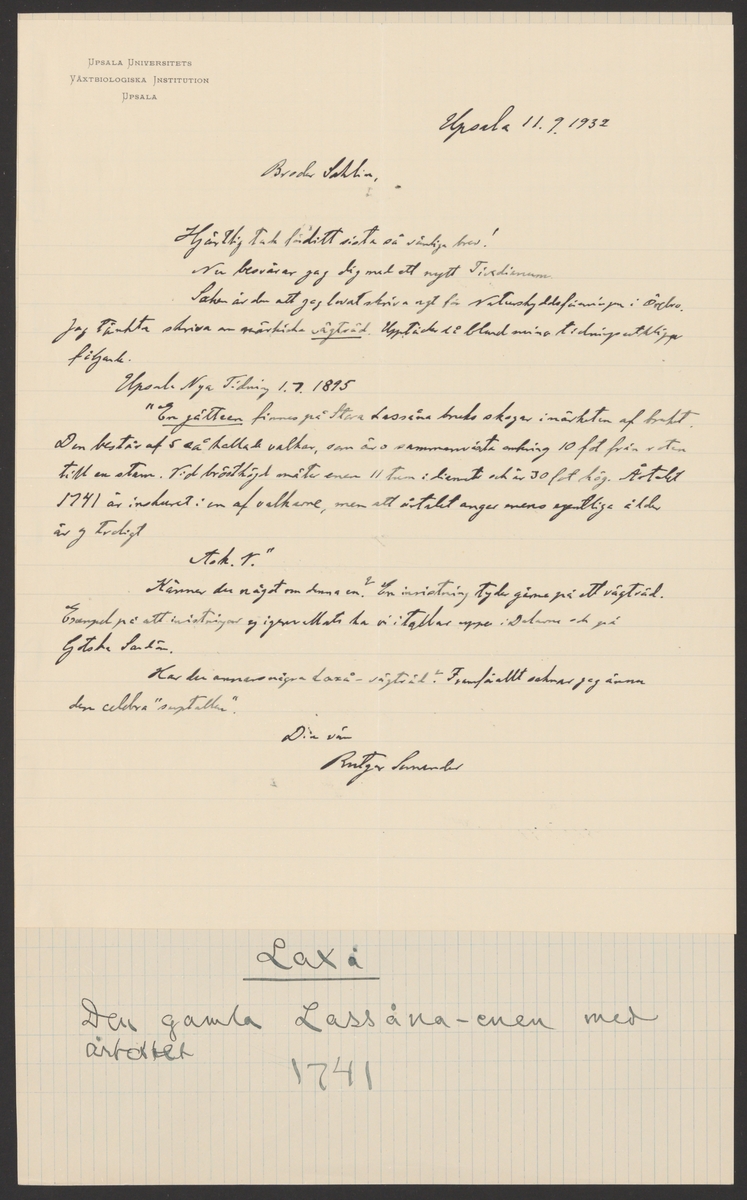 Upsala Universitets
Växtbiologiska Institution
Upsala
Upsala 11.9.1932
Broder Sahlin,
Hjärtlig tack för ditt sista så vänliga brev!
Nu besvärar jag dig med ett nytt
Saken är den att jag lovat skriva ngt för Naturskyddsföreningen i Örebro.
Jag tänkte skriva om märkliga vägträd. Upptäckte så bland mina tidningsurklipp
följande.
Upsala Nya Tidning 1.7. 1895
"En jätteen finnes på Stora Lassåna bruks skogar i närheten af bruket.
Den består af 5 så kallade valkar, som äro sammanväxta omkring 10 fot från roten
till en stam. Vid brösthöjd mäter enen 11 tum i diameter och är 30 fot hög. Årtalet
1741 är inskuret i en af valkarne, men att årtalet anger enens egentliga ålder
är ej troligt
Ask. T."
Känner du något om denna en? En inristning tyder gärna på ett vägträd.
Exempel på att inristningar ej igenvallats ha vi i tallar uppe i Dalarne och på
Gotska Sandön.
Har du annars några Laxå-vägträd? Framför allt saknar jag ännu
den celebra "suptallen".
Din vän
Rutger Sernander
Laxå
Den gamla Lassåna-enen med
årtalet
1741